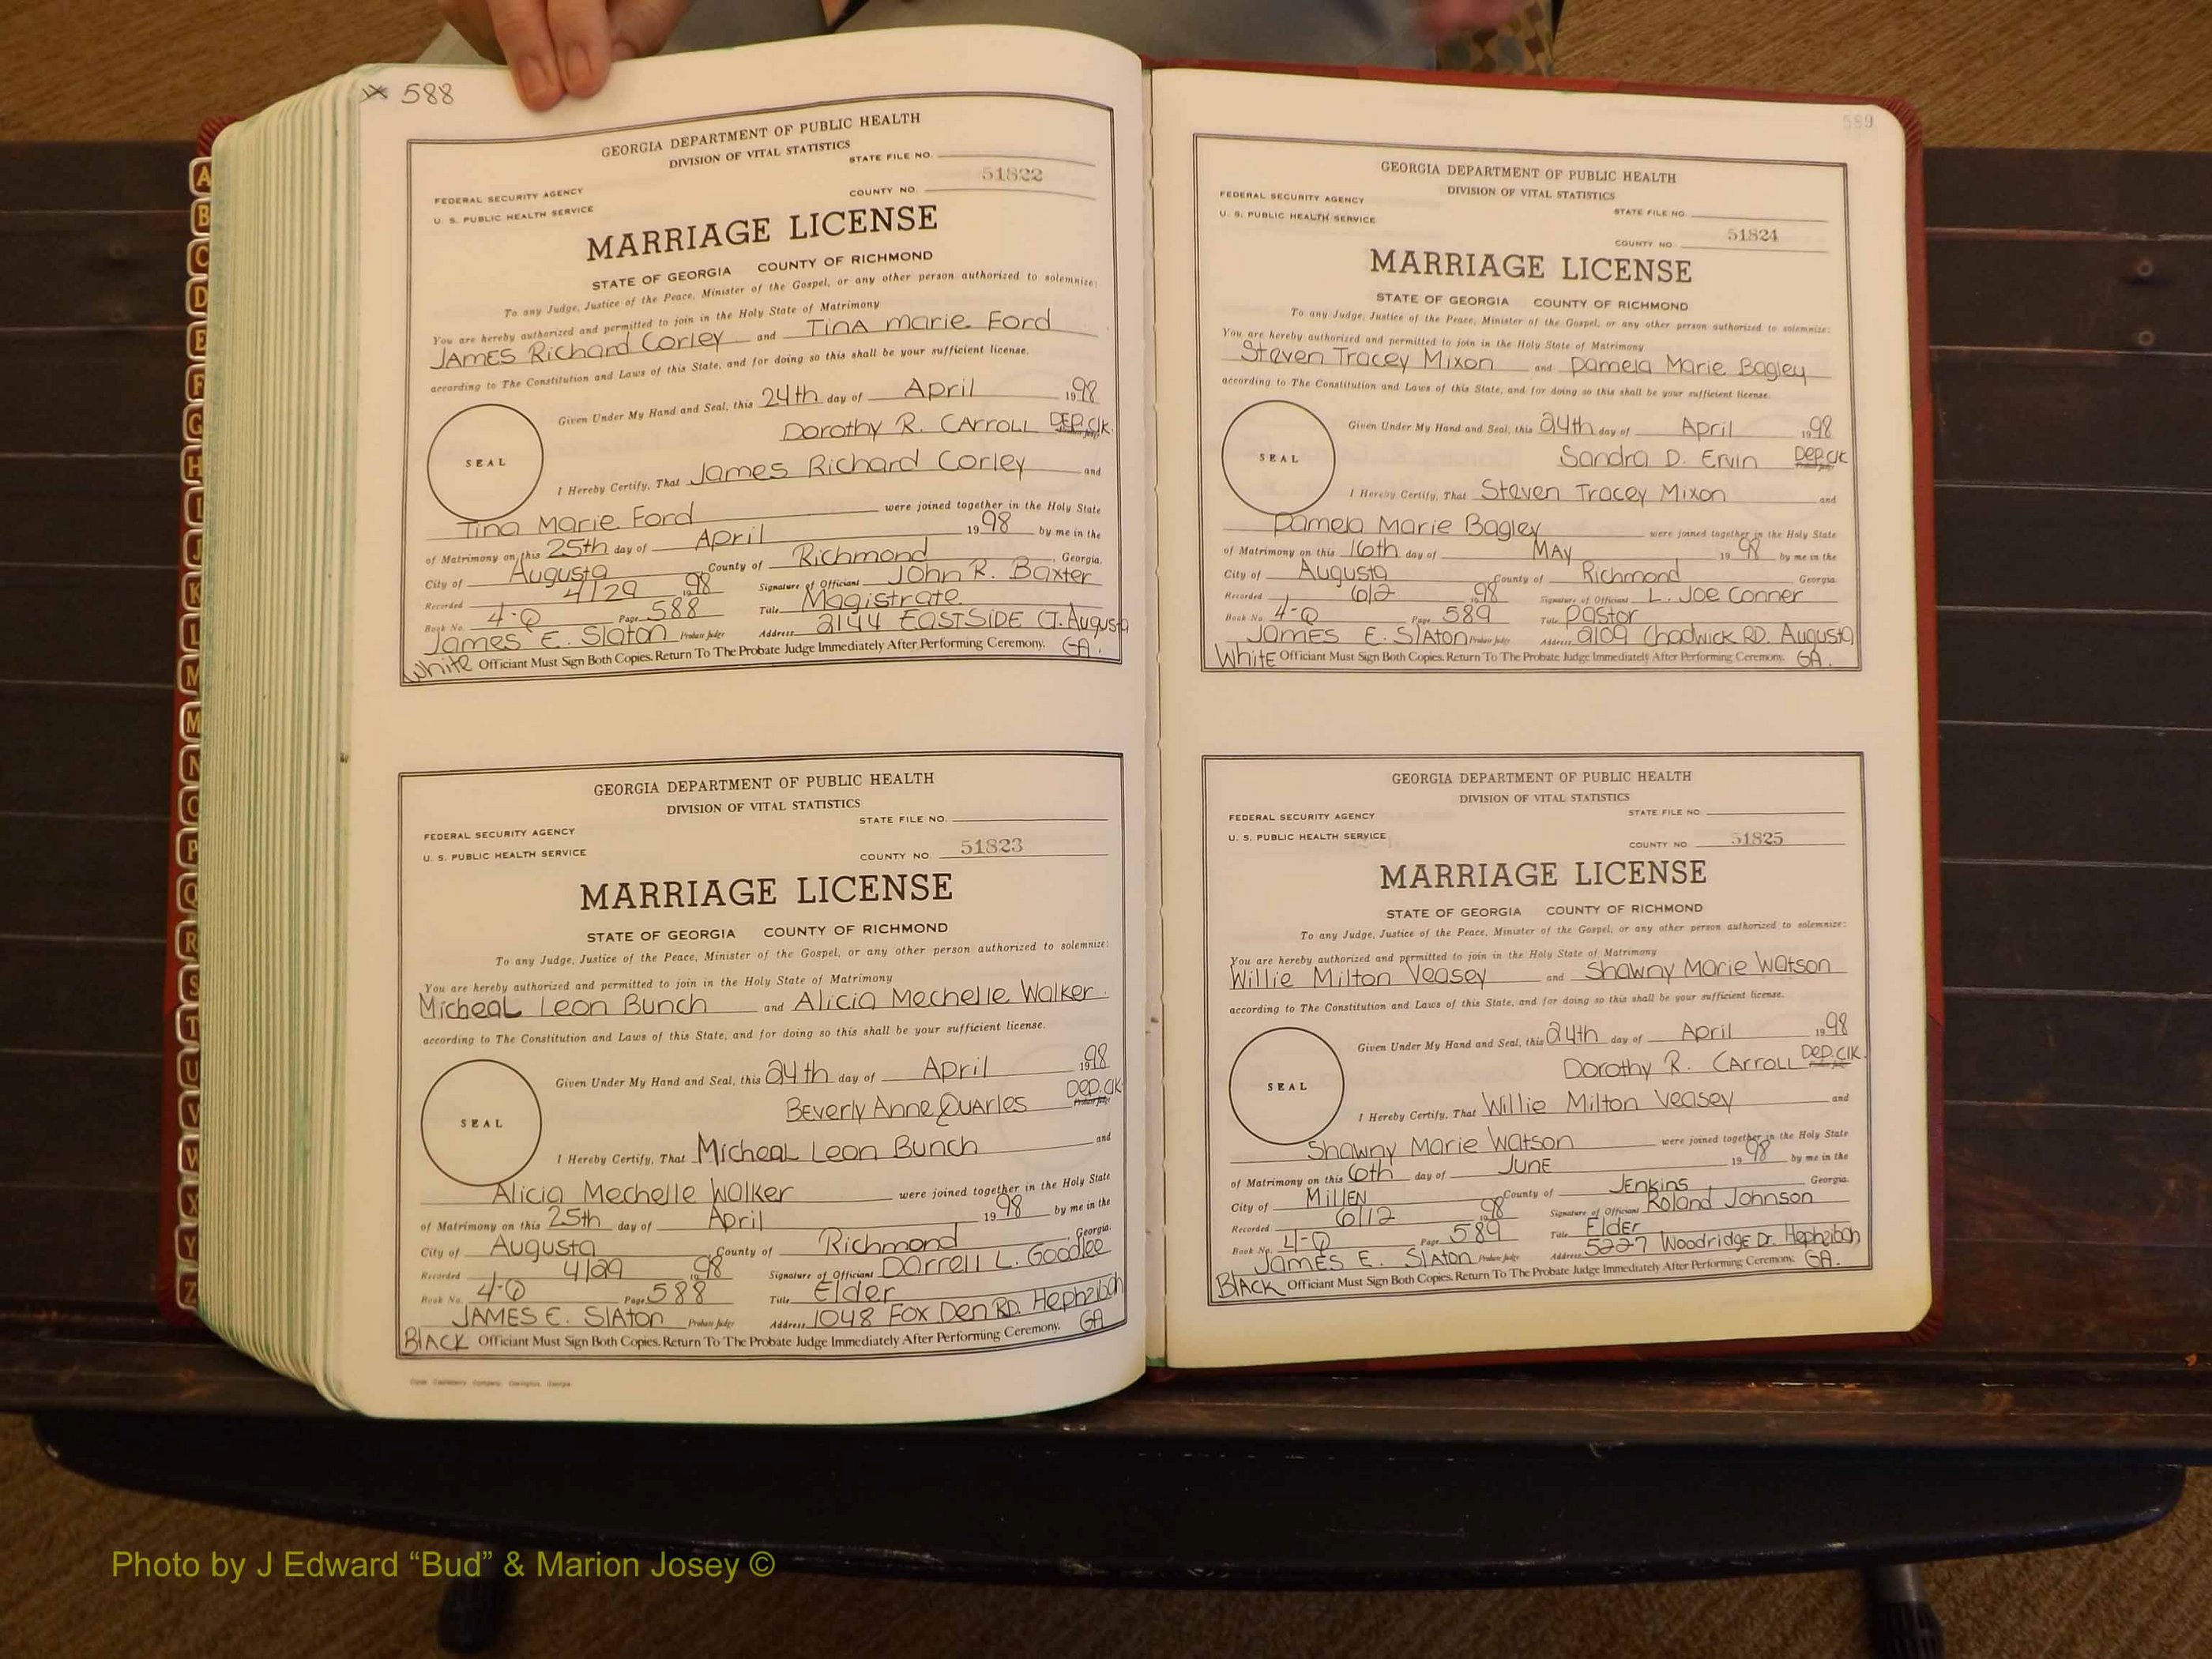 588
GEORGIA DEPARTMENT OF PUBLIC HEALTH
DIVISION OF VITAL STATISTICS
STATE FILE NO.
FEDERAL SECURITY AGENCY
U. S. PUBLIC HEALTH SERVICE
COUNTY NO. 51822
MARRIAGE LICENSE
STATE OF GEORGIA COUNTY OF RICHMOND
To any Judge, Justice of the Peace, Minister of the Gospel, or any other person authorized to solemnize:
You are hereby authorized and permitted to join in the Holy State of Matrimony
JAMES Richard Corley and TinA Marie Ford
according to The Constitution and Laws of this State, and for doing so this shall be your sufficient license.
Given Under My Hand and Seal, this 24th day of April 1998
Dorothy R. CArroLL DEP.Clk.
SEAL
I Hereby Certify, That James Richard Corley and
Tina Marie Ford were joined together in the Holy State
of Matrimony on this 25th day of April 1998 by me in the
City of Augusta County of Richmond, Georgia.
Recorded 4/29 1998 Signature of Officiant John R. Baxter
Book No. 4-Q Page 588 Title Magistrate
James E. Slaton Probate Judge Address 2144 EASTSIDE CT. Augusta
White Officiant Must Sign Both Copies. Return To The Probate Judge Immediately After Performing Ceremony. GA.
GEORGIA DEPARTMENT OF PUBLIC HEALTH
DIVISION OF VITAL STATISTICS
STATE FILE NO.
FEDERAL SECURITY AGENCY
U. S. PUBLIC HEALTH SERVICE
COUNTY NO. 51823
MARRIAGE LICENSE
STATE OF GEORGIA COUNTY OF RICHMOND
To any Judge, Justice of the Peace, Minister of the Gospel, or any other person authorized to solemnize:
You are hereby authorized and permitted to join in the Holy State of Matrimony
Micheal Leon Bunch and Alicia Mechelle Walker
according to The Constitution and Laws of this State, and for doing so this shall be your sufficient license.
Given Under My Hand and Seal, this 24th day of April 1998
Beverly Anne Quarles Dep.Clk
SEAL
I Hereby Certify, That Micheal Leon Bunch and
Alicia Mechelle Walker were joined together in the Holy State
of Matrimony on this 25th day of April 1998 by me in the
City of Augusta County of Richmond, Georgia.
Recorded 4/29 1998 Signature of Officiant Darrell L. Goodlee
Book No. 4-Q Page 588 Title Elder
JAMES E. SlAton Probate Judge Address 1048 Fox Den RD. Hephzibah
BlACK Officiant Must Sign Both Copies. Return To The Probate Judge Immediately After Performing Ceremony. GA
589
GEORGIA DEPARTMENT OF PUBLIC HEALTH
DIVISION OF VITAL STATISTICS
FEDERAL SECURITY AGENCY
STATE FILE NO.
U. S. PUBLIC HEALTH SERVICE
COUNTY NO. 51824
MARRIAGE LICENSE
STATE OF GEORGIA COUNTY OF RICHMOND
To any Judge, Justice of the Peace, Minister of the Gospel, or any other person authorized to solemnize:
You are hereby authorized and permitted to join in the Holy State of Matrimony
Steven Tracey Mixon and Pamela Marie Bagley
according to The Constitution and Laws of this State, and for doing so this shall be your sufficient license.
Given Under My Hand and Seal, this 24th day of April 1998
Sandra D. Ervin DEP.ClK
SEAL
I Hereby Certify, That Steven Tracey Mixon and
Pamela Marie Bagley were joined together in the Holy State
of Matrimony on this 16th day of MAY 1998 by me in the
City of Augusta County of Richmond Georgia.
Recorded 6/2 1998 Signature of Officiant L. Joe Conner
Book No. 4-Q Page 589 Title Pastor
JAMES E. SlAton Probate Judge Address 2109 Chadwick RD. Augusta
White Officiant Must Sign Both Copies. Return To The Probate Judge Immediately After Performing Ceremony. GA.
GEORGIA DEPARTMENT OF PUBLIC HEALTH
DIVISION OF VITAL STATISTICS
FEDERAL SECURITY AGENCY
STATE FILE NO.
U. S. PUBLIC HEALTH SERVICE
COUNTY NO. 51825
MARRIAGE LICENSE
STATE OF GEORGIA COUNTY OF RICHMOND
To any Judge, Justice of the Peace, Minister of the Gospel, or any other person authorized to solemnize:
You are hereby authorized and permitted to join in the Holy State of Matrimony
Willie Milton Veasey and Shawny Marie Watson
according to The Constitution and Laws of this State, and for doing so this shall be your sufficient license.
Given Under My Hand and Seal, this 24th day of April 1998
Dorothy R. CArroLL Dep.ClK.
SEAL
I Hereby Certify, That Willie Milton Veasey and
Shawny Marie Watson were joined together in the Holy State
of Matrimony on this 6th day of JUNE 1998 by me in the
City of MillEN County of JEnkins, Georgia.
Recorded 6/12 1998 Signature of Officiant Roland Johnson
Book No. 4-Q Page 589 Title Elder
JAMES E. SlAton Probate Judge Address 5227 Woodridge Dr. Hephzibah
BlACK Officiant Must Sign Both Copies. Return To The Probate Judge Immediately After Performing Ceremony. GA.
A
B
C
D
E
F
G
H
I
J
K
L
M
M
N
O
P
Q
R
S
T
U
V
W
X
Y
Z
Photo by J Edward “Bud” & Marion Josey ©